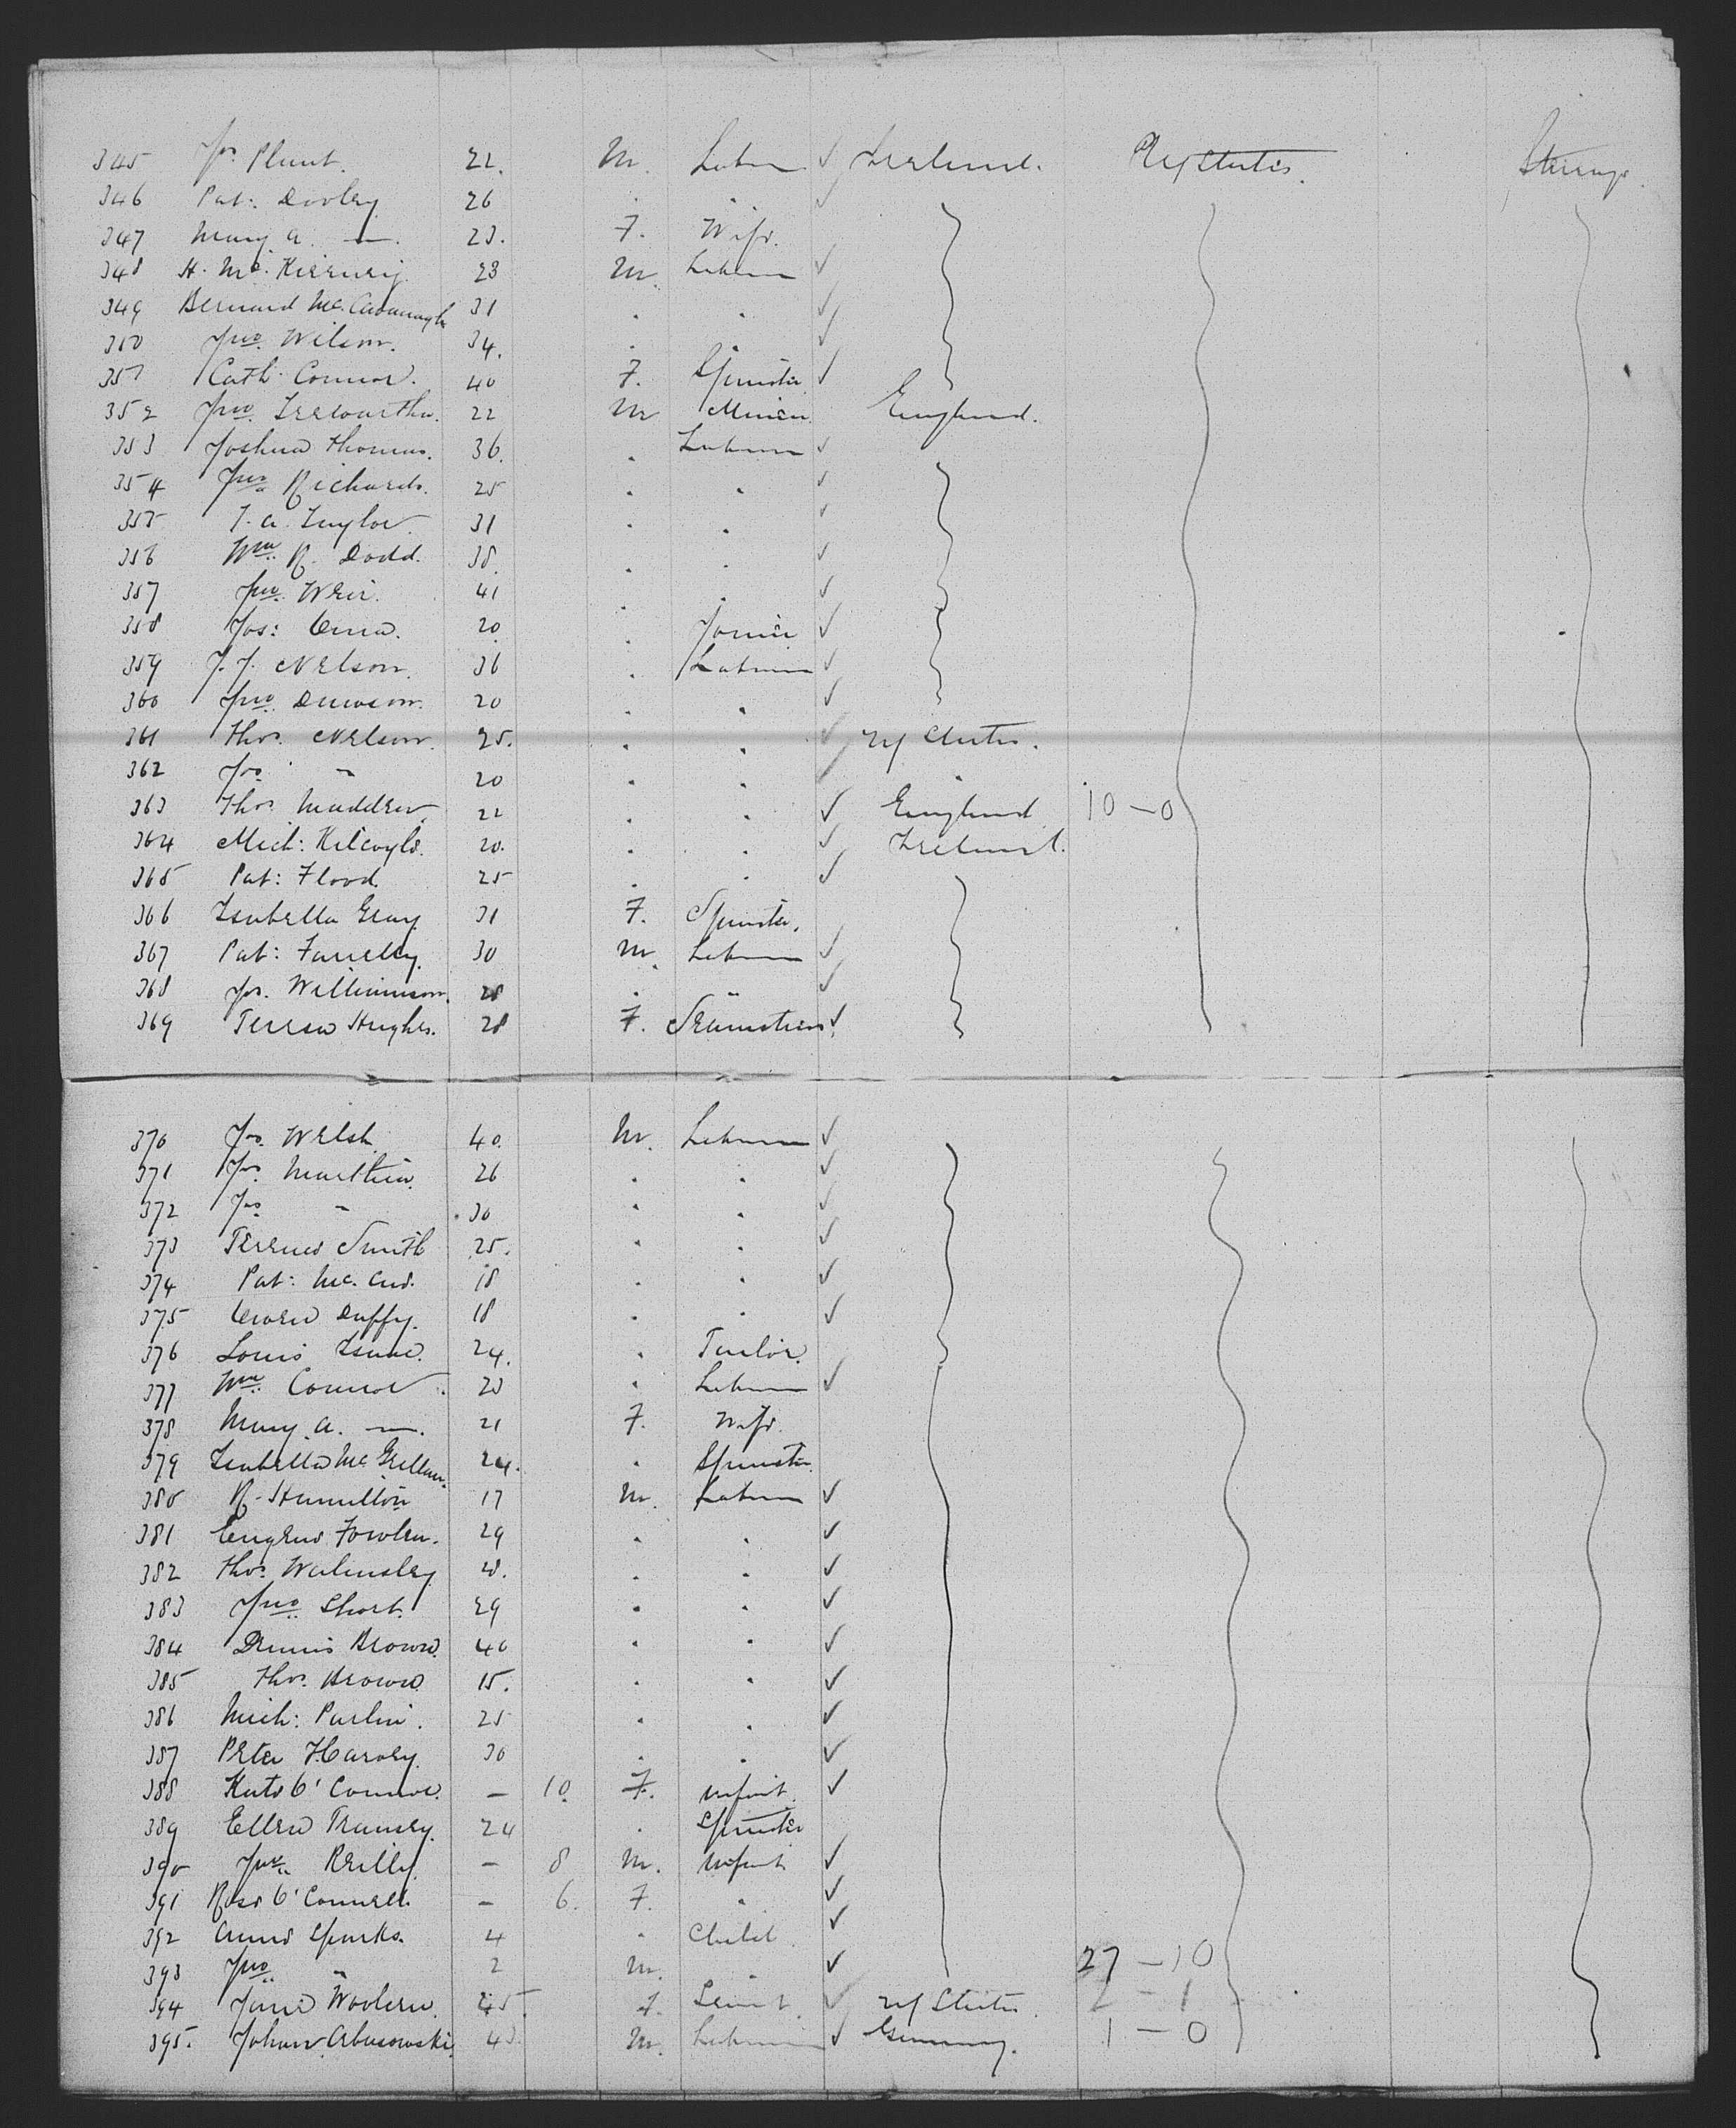 345 Jas. Plunt. 22. M. Labr ✓ Ireland. U/States. Steerage.
346 Pat: Dooley 26 . . ✓
347 Mary A. — . 23. F. Wife.
348 H. Mc. Kiernig 23 M. Labour ✓
349 Bernard Mc. Cavanagh 31 . . ✓
350 Jno. Wilson. 34. . . ✓
351 Cath Connor. 40 F. Spinster ✓
352 Jno. Treewartha. 22 M Miner England.
353 Joshua Thomas. 36. . Labour ✓
354 Jno. Richards. 25 . . ✓
355 T. A. Taylor 31 . . ✓
356 Wm. R. Dodd. 38. . . ✓
357 Jno. Weir. 41 . . ✓
358 Jos: 20 . Joiner ✓
359 J. J. Nelson. 36 . Labour ✓
360 Jno. Dawson. 20 . . ✓
361 Thos. Nelson. 25. . . ✓ U/States.
362 Jas. " 20 . . ✓ "
363 Thos. Madden 22 . . ✓ England 10 — 0
364 Mich: Kilcoyle. 20. . . ✓ Ireland.
365 Pat: Flood. 25 . . ✓
366 Isabella Gray 31 F. Spinster.
367 Pat: Farrelly. 30 M. Labour ✓
368 Jas. Williamson. 28 . " ✓
369 Teresa Hughes. 28 F. Seamstress ✓
370 Jas. Welsh 40. M. Labour ✓
371 Jas. Marthin. 26 . . ✓
372 Jas. " 30 . . ✓
373 Terence Smith 25. . . ✓
374 Pat: Mc. Cue. 18 . . ✓
375 Owen Duffy. 18 . . ✓
376 Louis Isaac. 24. . Tailor.
377 Wm. Connor. 23 . Labour ✓
378 Mary A. — . 21 F. Wife.
379 Isabella Mc Grellan. 24. . Spinster.
380 R. Hamilton 17 M. Labour ✓
381 Eugene Fowler. 29 . . ✓
382 Thos. Walmsley 28. . . ✓
383 Jno. Short. 29 . . ✓
384 Dennis Brown. 40 . . ✓
385 Thos. Brown 15. . . ✓
386 Mich: Parlin. 25 . . ✓
387 Peter Harvey. 30 . . ✓
388 Kate O'Connor. — 10. F. infant. ✓
389 Ellen Tramey. 24 . Spinster
390 Jno. Reilly. — 8 M. infant ✓
391 Rose O'Connell. — 6. F. . ✓
392 Annie Sparks. 4 . Child. ✓
393 Jno. " 2 M. . ✓ 27 — 10
394 Jane Woolen. 45. F. Servt. ✓ U/States. 2 — 1
395. Johan Abusowski. 43. M. Labour ✓ Germany. 1 — 0